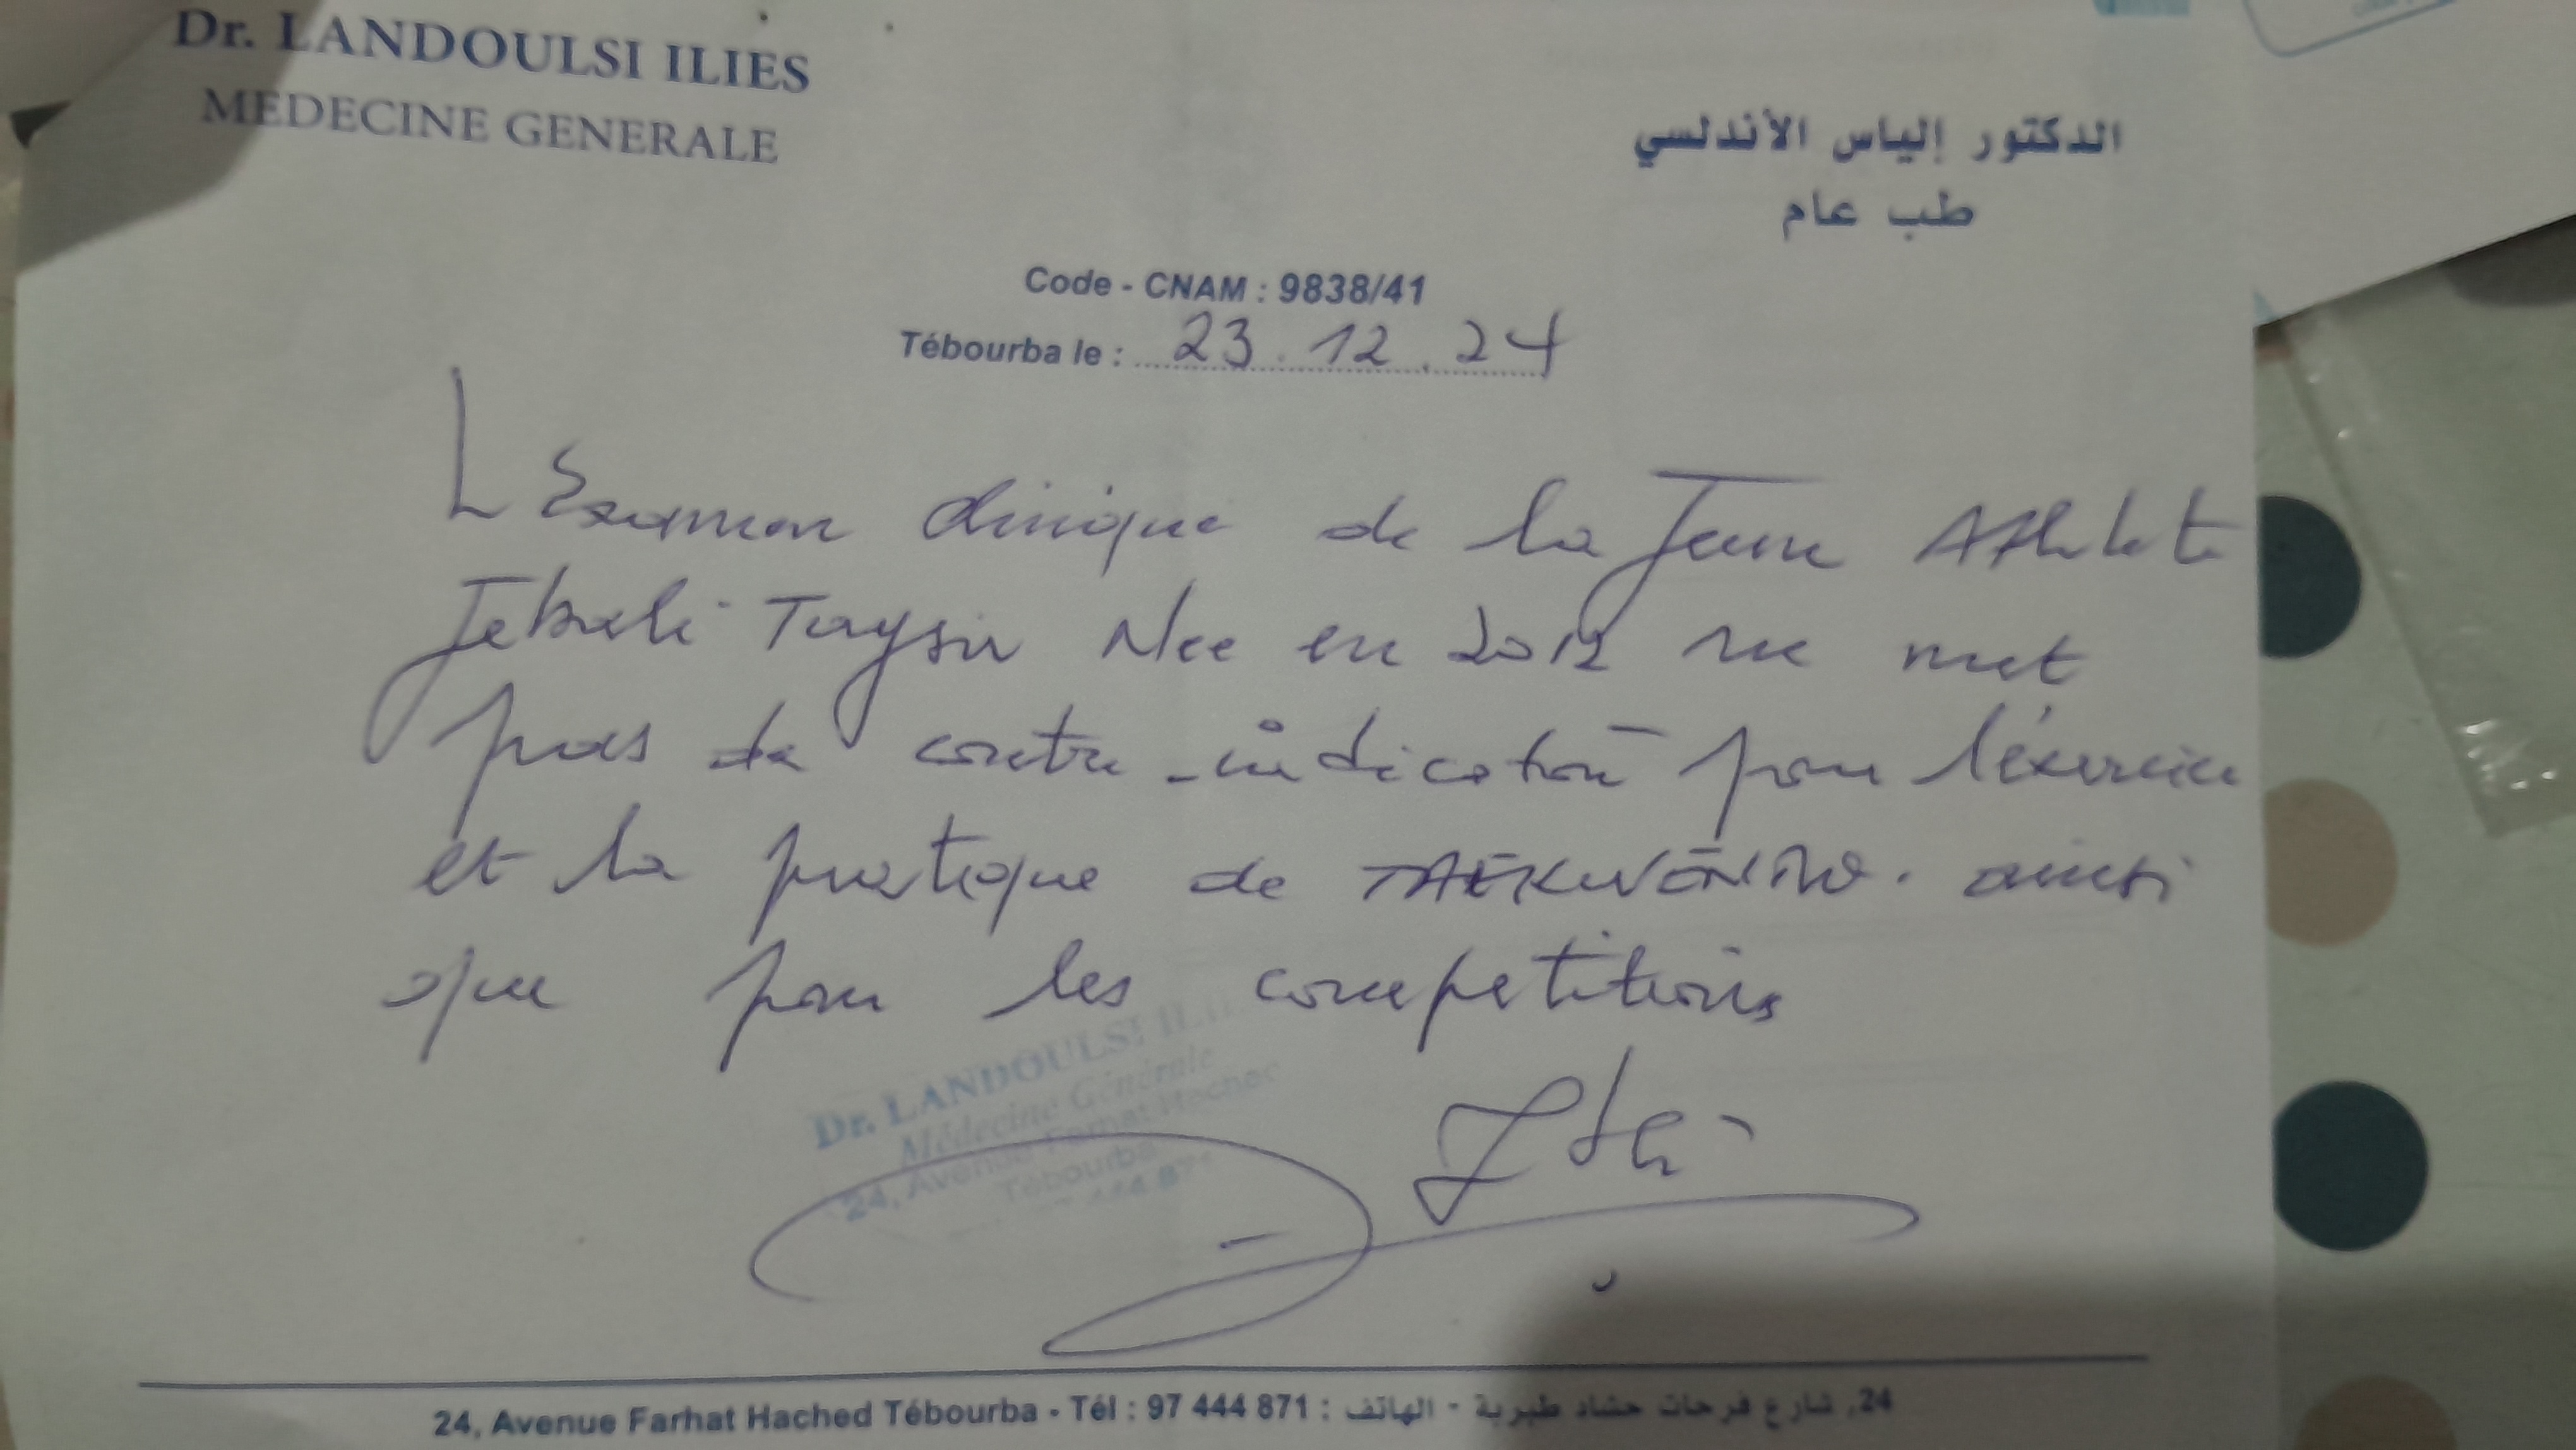 Dr. LANDOULSI ILIES
MEDECINE GENERALE
الدكتور إلياس الأندلسي
طب عام
Code - CNAM : 9838/41
Tébourba le : 23.12.24
L'Examen clinique de la Jeune Athlete
Jebali Taysir Nee en 2012 ne met
pas de contre-indication pour l'éxercice
et la pratique de TAEKWONDO. ainsi
que pour les competitions
Dr. LANDOULSI ILI
Médecine Générale
24, Avenue Farhat Hached
Tébourba
24, Avenue Farhat Hached Tébourba - Tél : 97 444 871 : 24, شارع فرحات حشاد طبربة - الهاتف